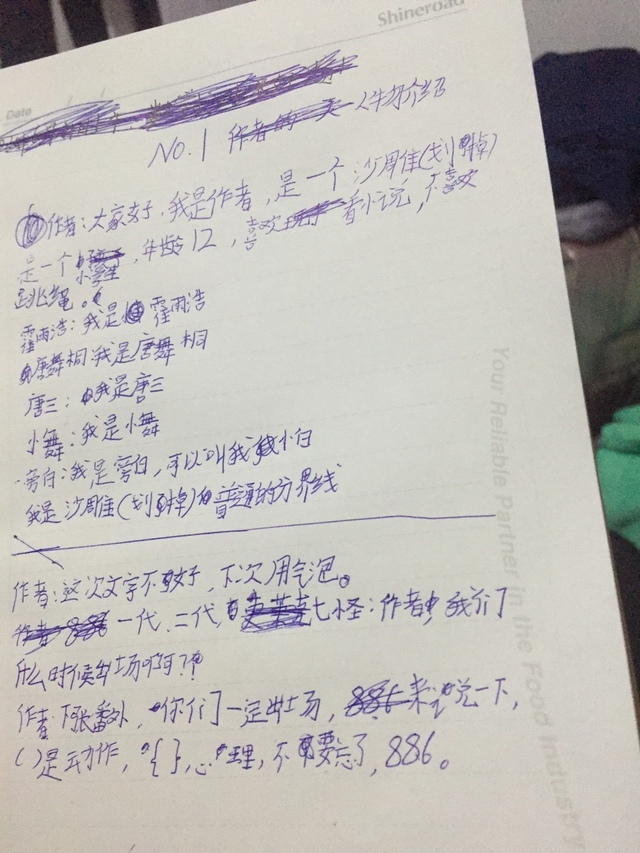 Shineroad
Date
NO.1 作者的一天 人物介绍
作者：大家好，我是作者，是一个沙雕(划掉)
是一个小学生，年龄12，喜欢看小说，不喜欢
跳绳。
霍雨浩：我是霍雨浩
唐舞桐：我是唐舞桐
唐三：我是唐三
小舞：我是小舞
旁白：我是旁白，可以叫我小白
我是沙雕(划掉)普通的分界线
作者：这次文字不好，下次用气泡。
一代、二代，七怪：作者，我们
什么时候出场啊？
作者：下张番外，你们一定出场，来说一下，
()是动作，{}，心理，不要忘了，886。
Your Reliable Partner in the Food Industry